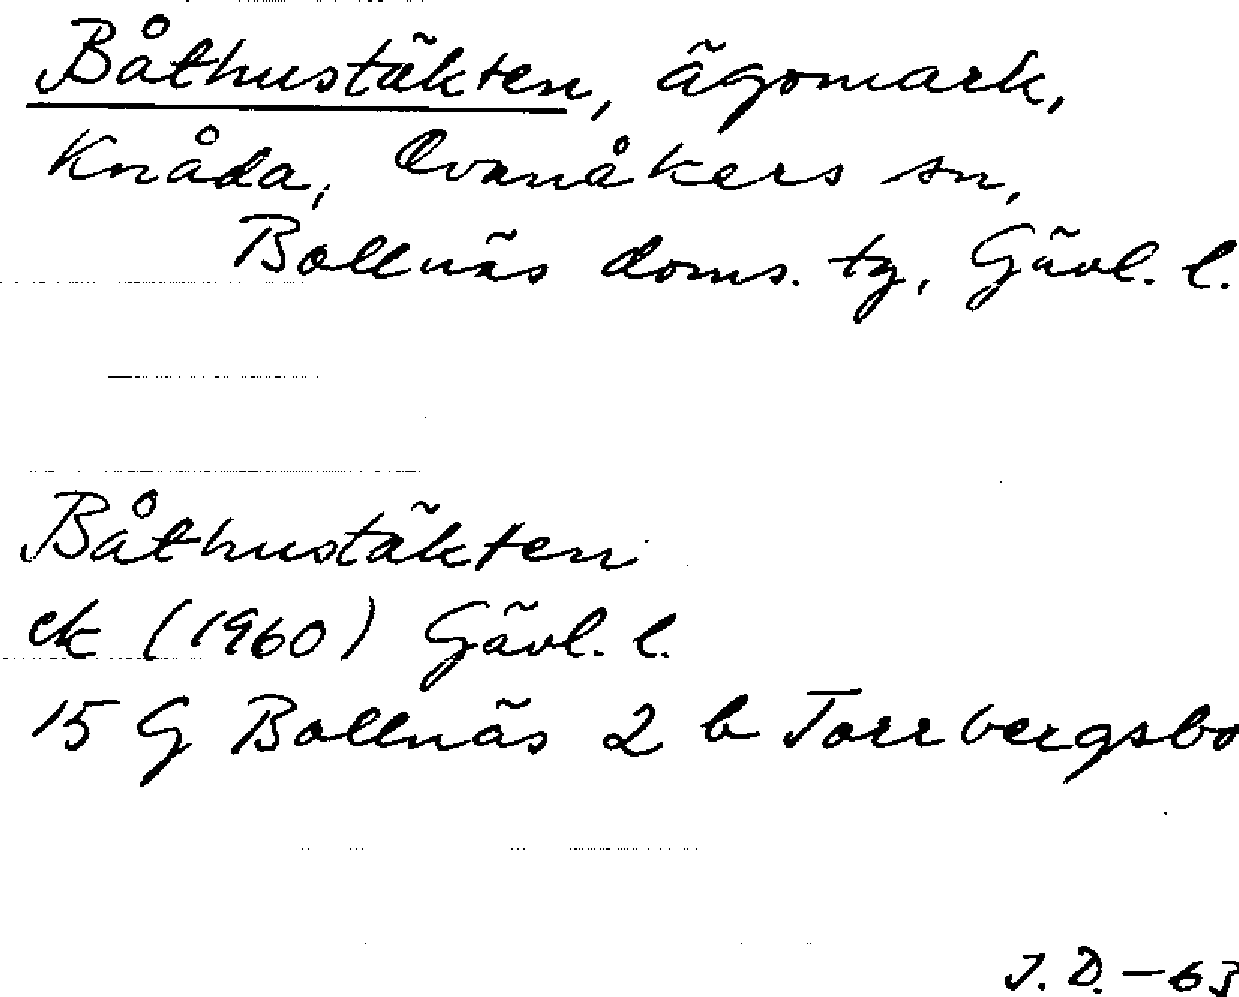 Båthustäkten, ägomark,
Knåda, Ovanåkers sn,
Bollnäs doms. tg, Gävl. l.
Båthustäkten
ek (1960) Gävl. l.
15 G Bollnäs 2 b Torrbergsbo
J. D. - 63